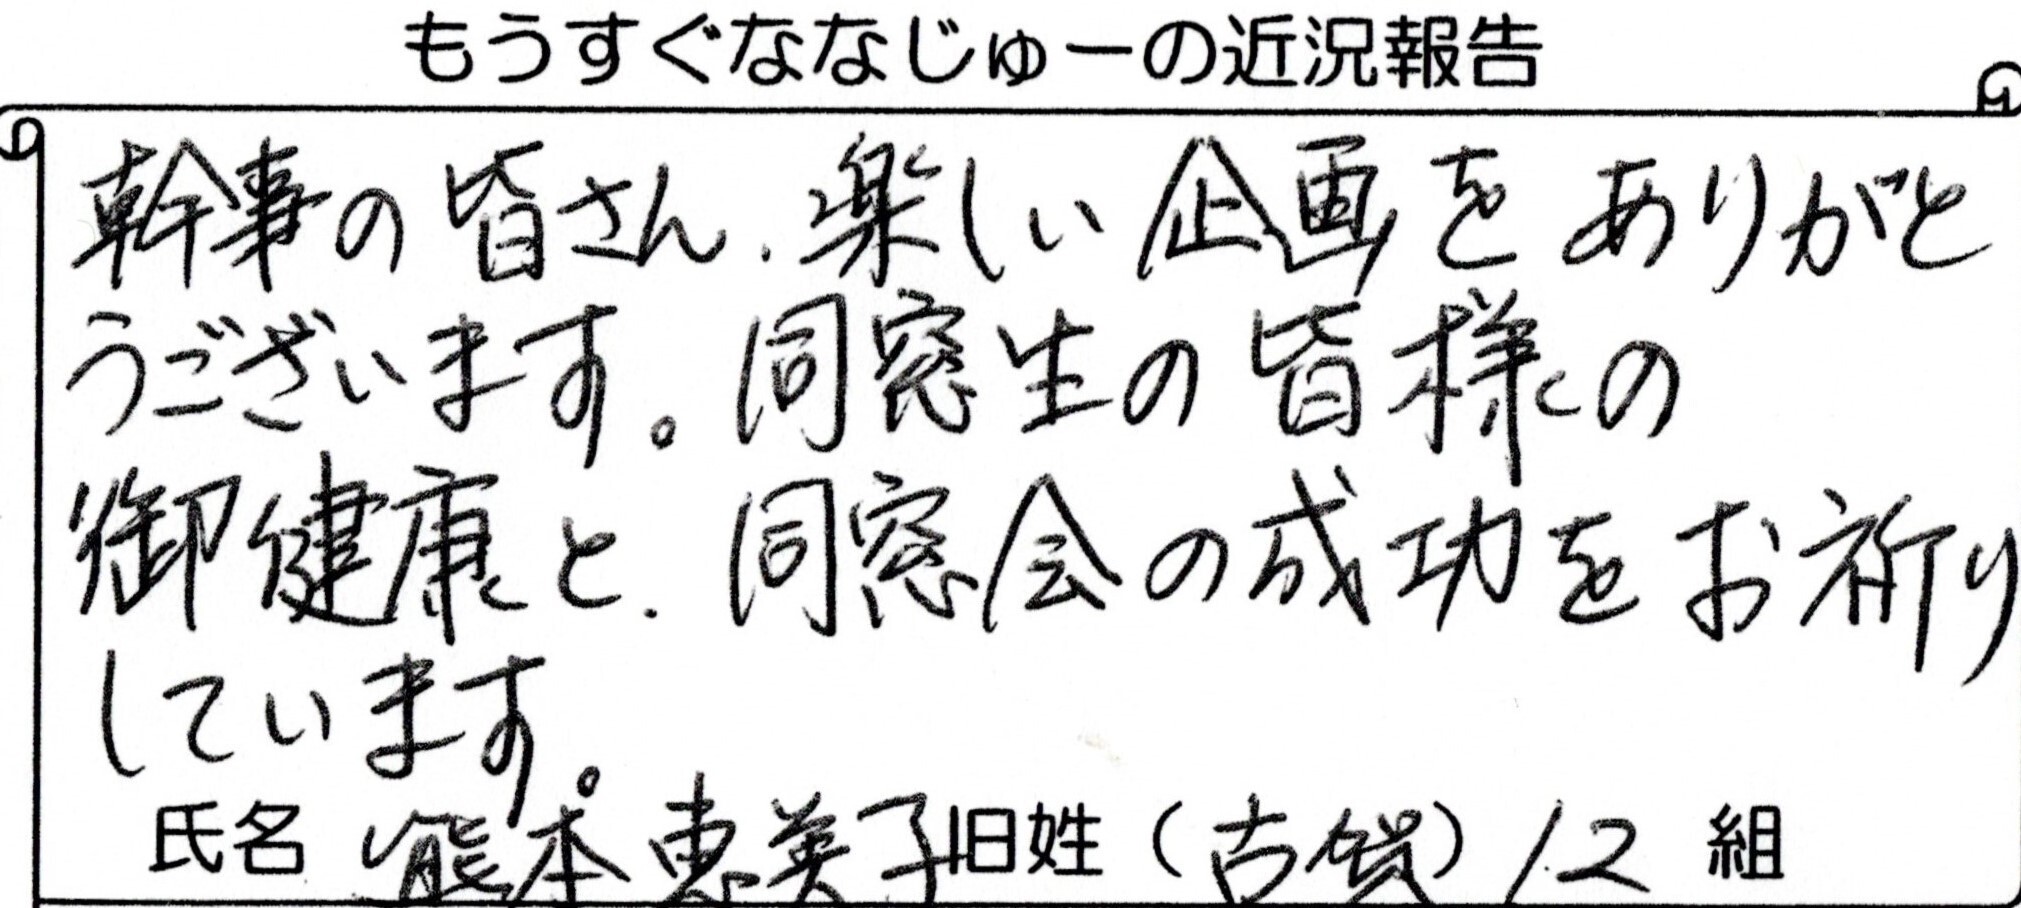 もうすぐななじゅーの近況報告
幹事の皆さん、楽しい企画をありがと
うございます。同窓生の皆様の
御健康と、同窓会の成功をお祈り
しています。
氏名 熊本恵美子 旧姓(古賀) 12 組